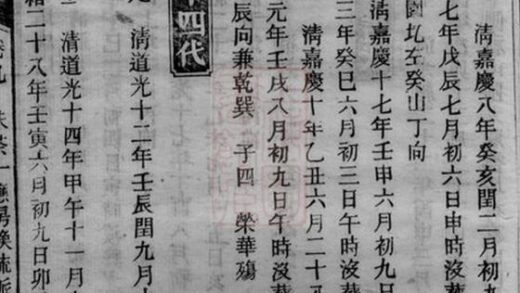 清嘉慶八年癸亥閏二月初
七年戊辰七月初六日申時沒葬
園圠左癸山丁向
清嘉慶十七年壬申六月初九
三年癸巳六月初三日午時沒葬
清嘉慶十年乙丑六月二十八
元年壬戌八月初九日午時沒葬
辰向兼乾巽 子四 榮華殤
十四代
清道光十二年壬辰閏九月
清道光十四年甲午十一月
緒二十八年壬寅六月初九日卯
卷九 一應房煥流派